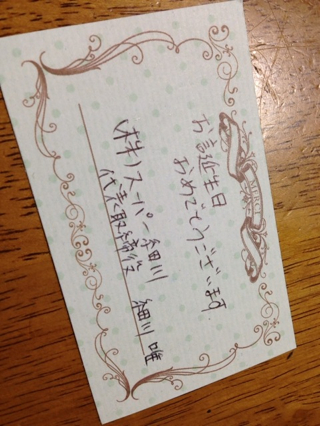 MERCI
お誕生日
おめでとうございます。
(株)スーパー細川
代表取締役 細川 唯